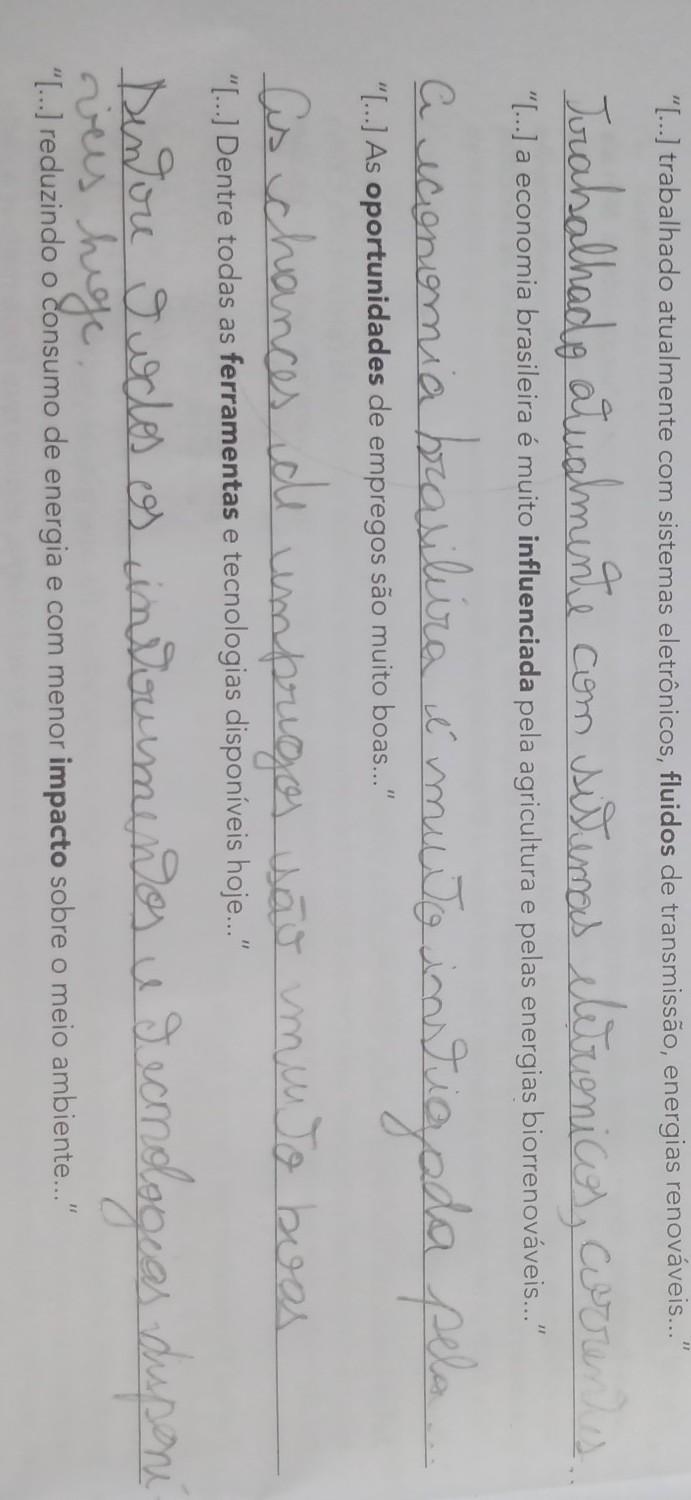 "[...] trabalhado atualmente com sistemas eletrônicos, fluidos de transmissão, energias renováveis..."
Trabalhado atualmente com sistemas eletronicos, correntes...
"[...] a economia brasileira é muito influenciada pela agricultura e pelas energias biorrenováveis..."
A economia brasileira é muito instigada pela...
"[...] As oportunidades de empregos são muito boas..."
As chances de empregos são muito boas
"[...] Dentre todas as ferramentas e tecnologias disponíveis hoje..."
Dentre todos os instrumentos e tecnologias disponí
veis hoje.
"[...] reduzindo o consumo de energia e com menor impacto sobre o meio ambiente..."